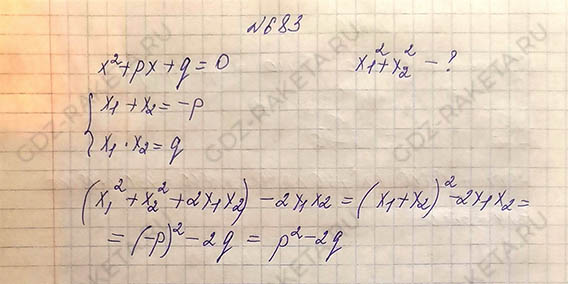 №683
x²+px+q=0 x₁²+x₂² - ?
{ x₁+x₂=-p
x₁·x₂=q
(x₁²+x₂²+2x₁x₂)-2x₁x₂=(x₁+x₂)²-2x₁x₂=
=(-p)²-2q=p²-2q
GDZ-RAKETA.RU